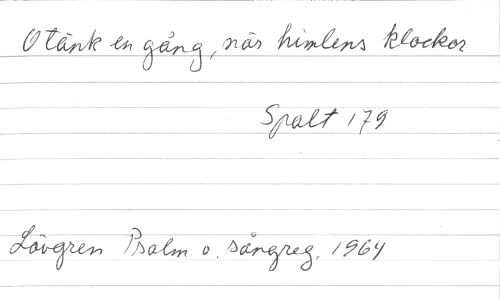 O tänk en gång, när himlens klockor
Spalt 179
Lövgren Psalm o. sångreg. 1964